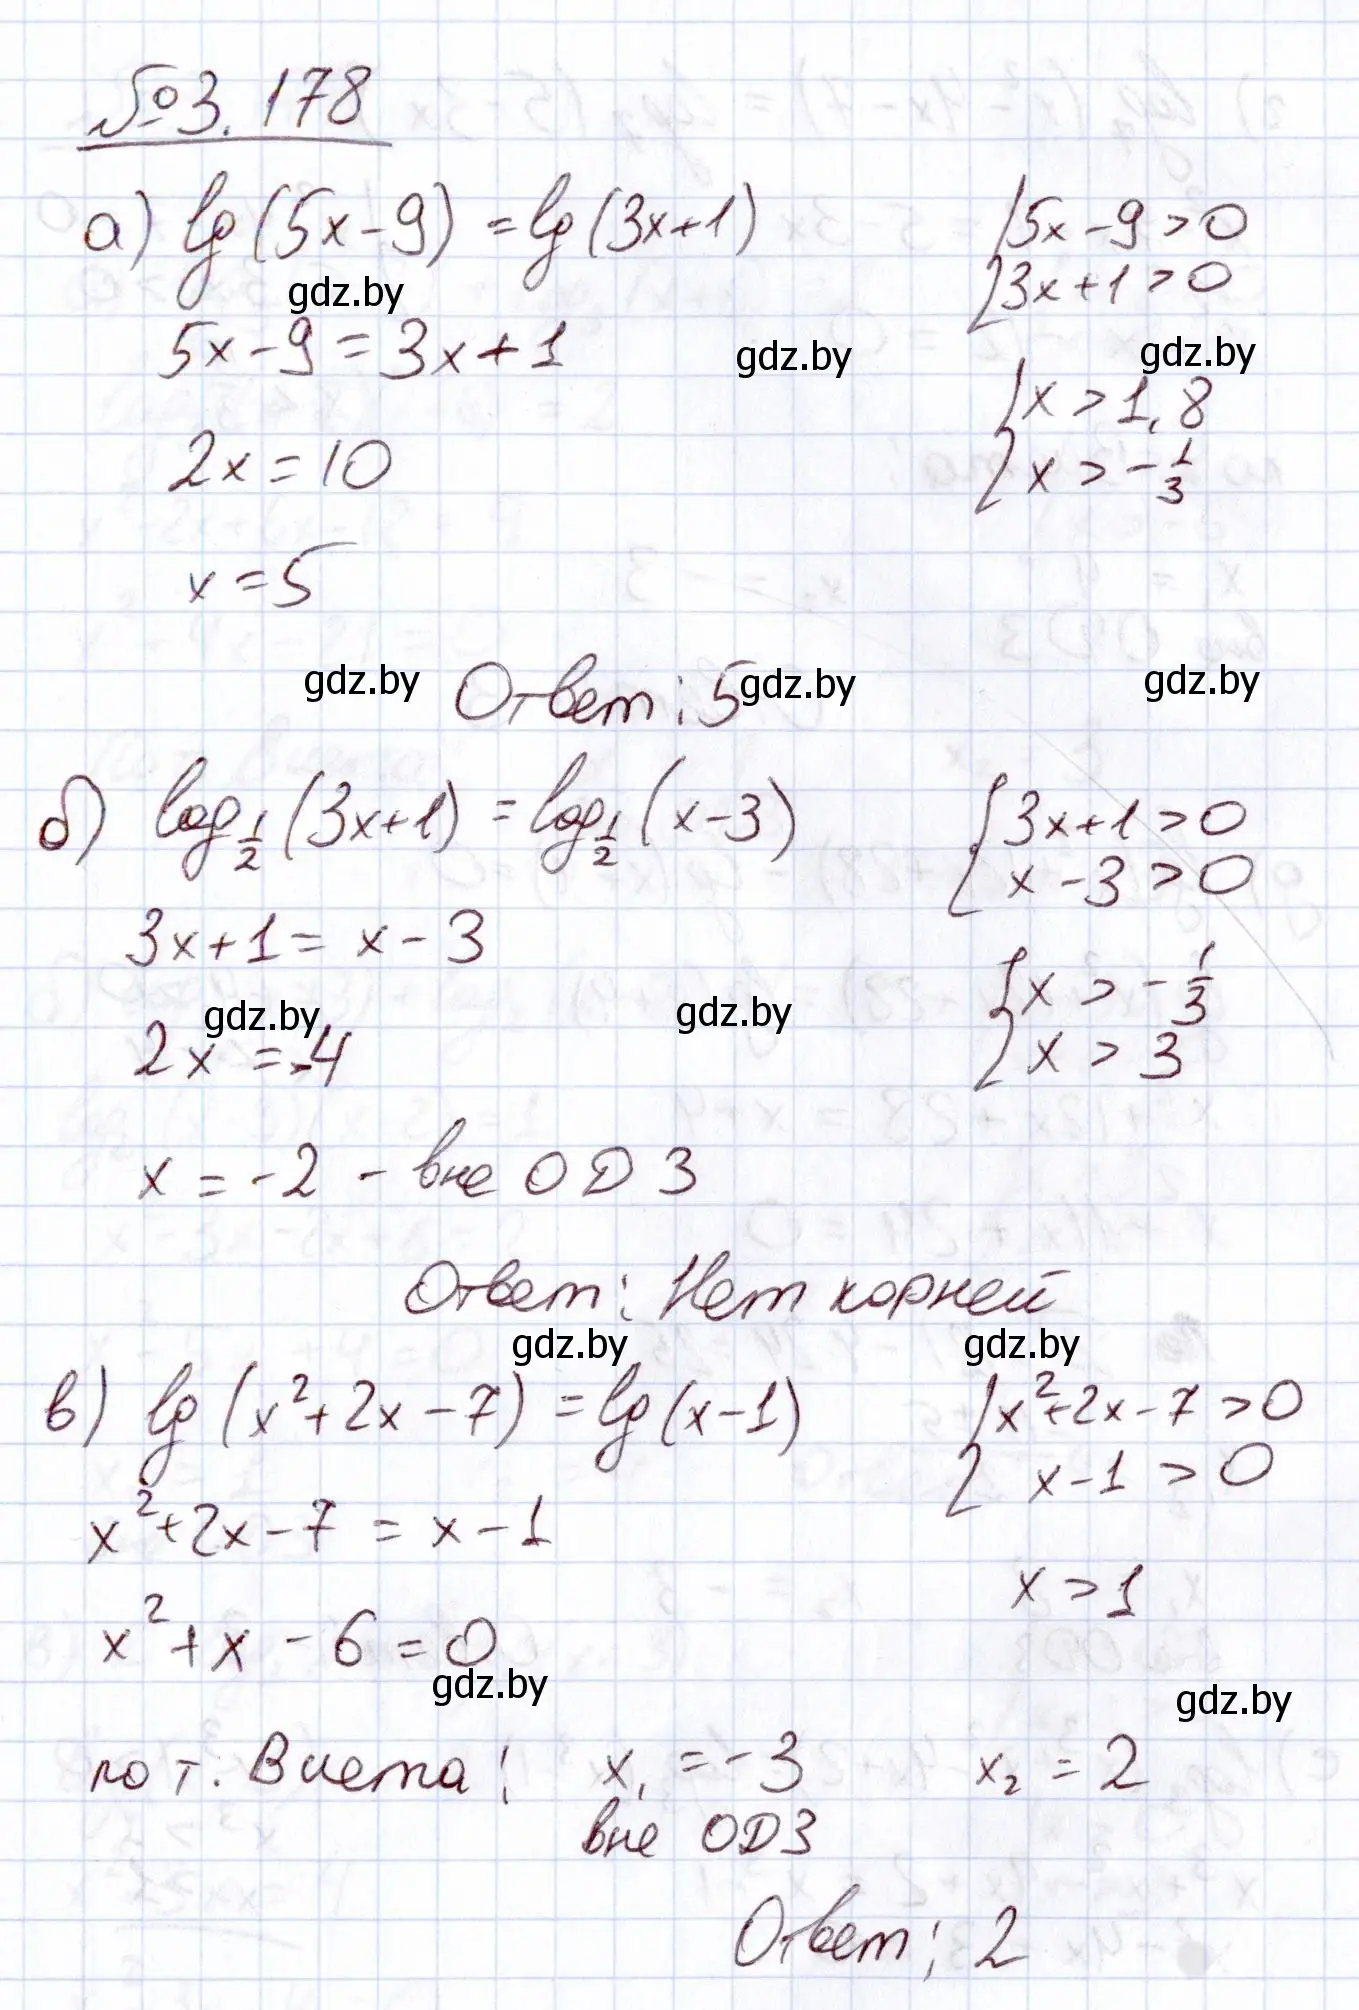 №3.178
а) lg(5x-9) = lg(3x+1) {5x-9>0
3x+1>0
gdz.by
5x-9=3x+1 gdz.by gdz.by
{x>1,8
2x=10 x>-1/3
x=5
gdz.by Ответ: 5 gdz.by gdz.by
б) log_{1/2}(3x+1) = log_{1/2}(x-3) {3x+1>0
x-3>0
3x+1= x-3 {x>-1/3
gdz.by gdz.by
2x=-4 x>3
x=-2 - вне ОДЗ
Ответ: Нет корней
gdz.by gdz.by
в) lg(x²+2x-7) = lg(x-1) {x²+2x-7>0
x-1>0
x²+2x-7 = x-1
x>1
x²+x-6=0
gdz.by gdz.by
по т. Виета: x₁=-3 x₂=2
вне ОДЗ
Ответ: 2